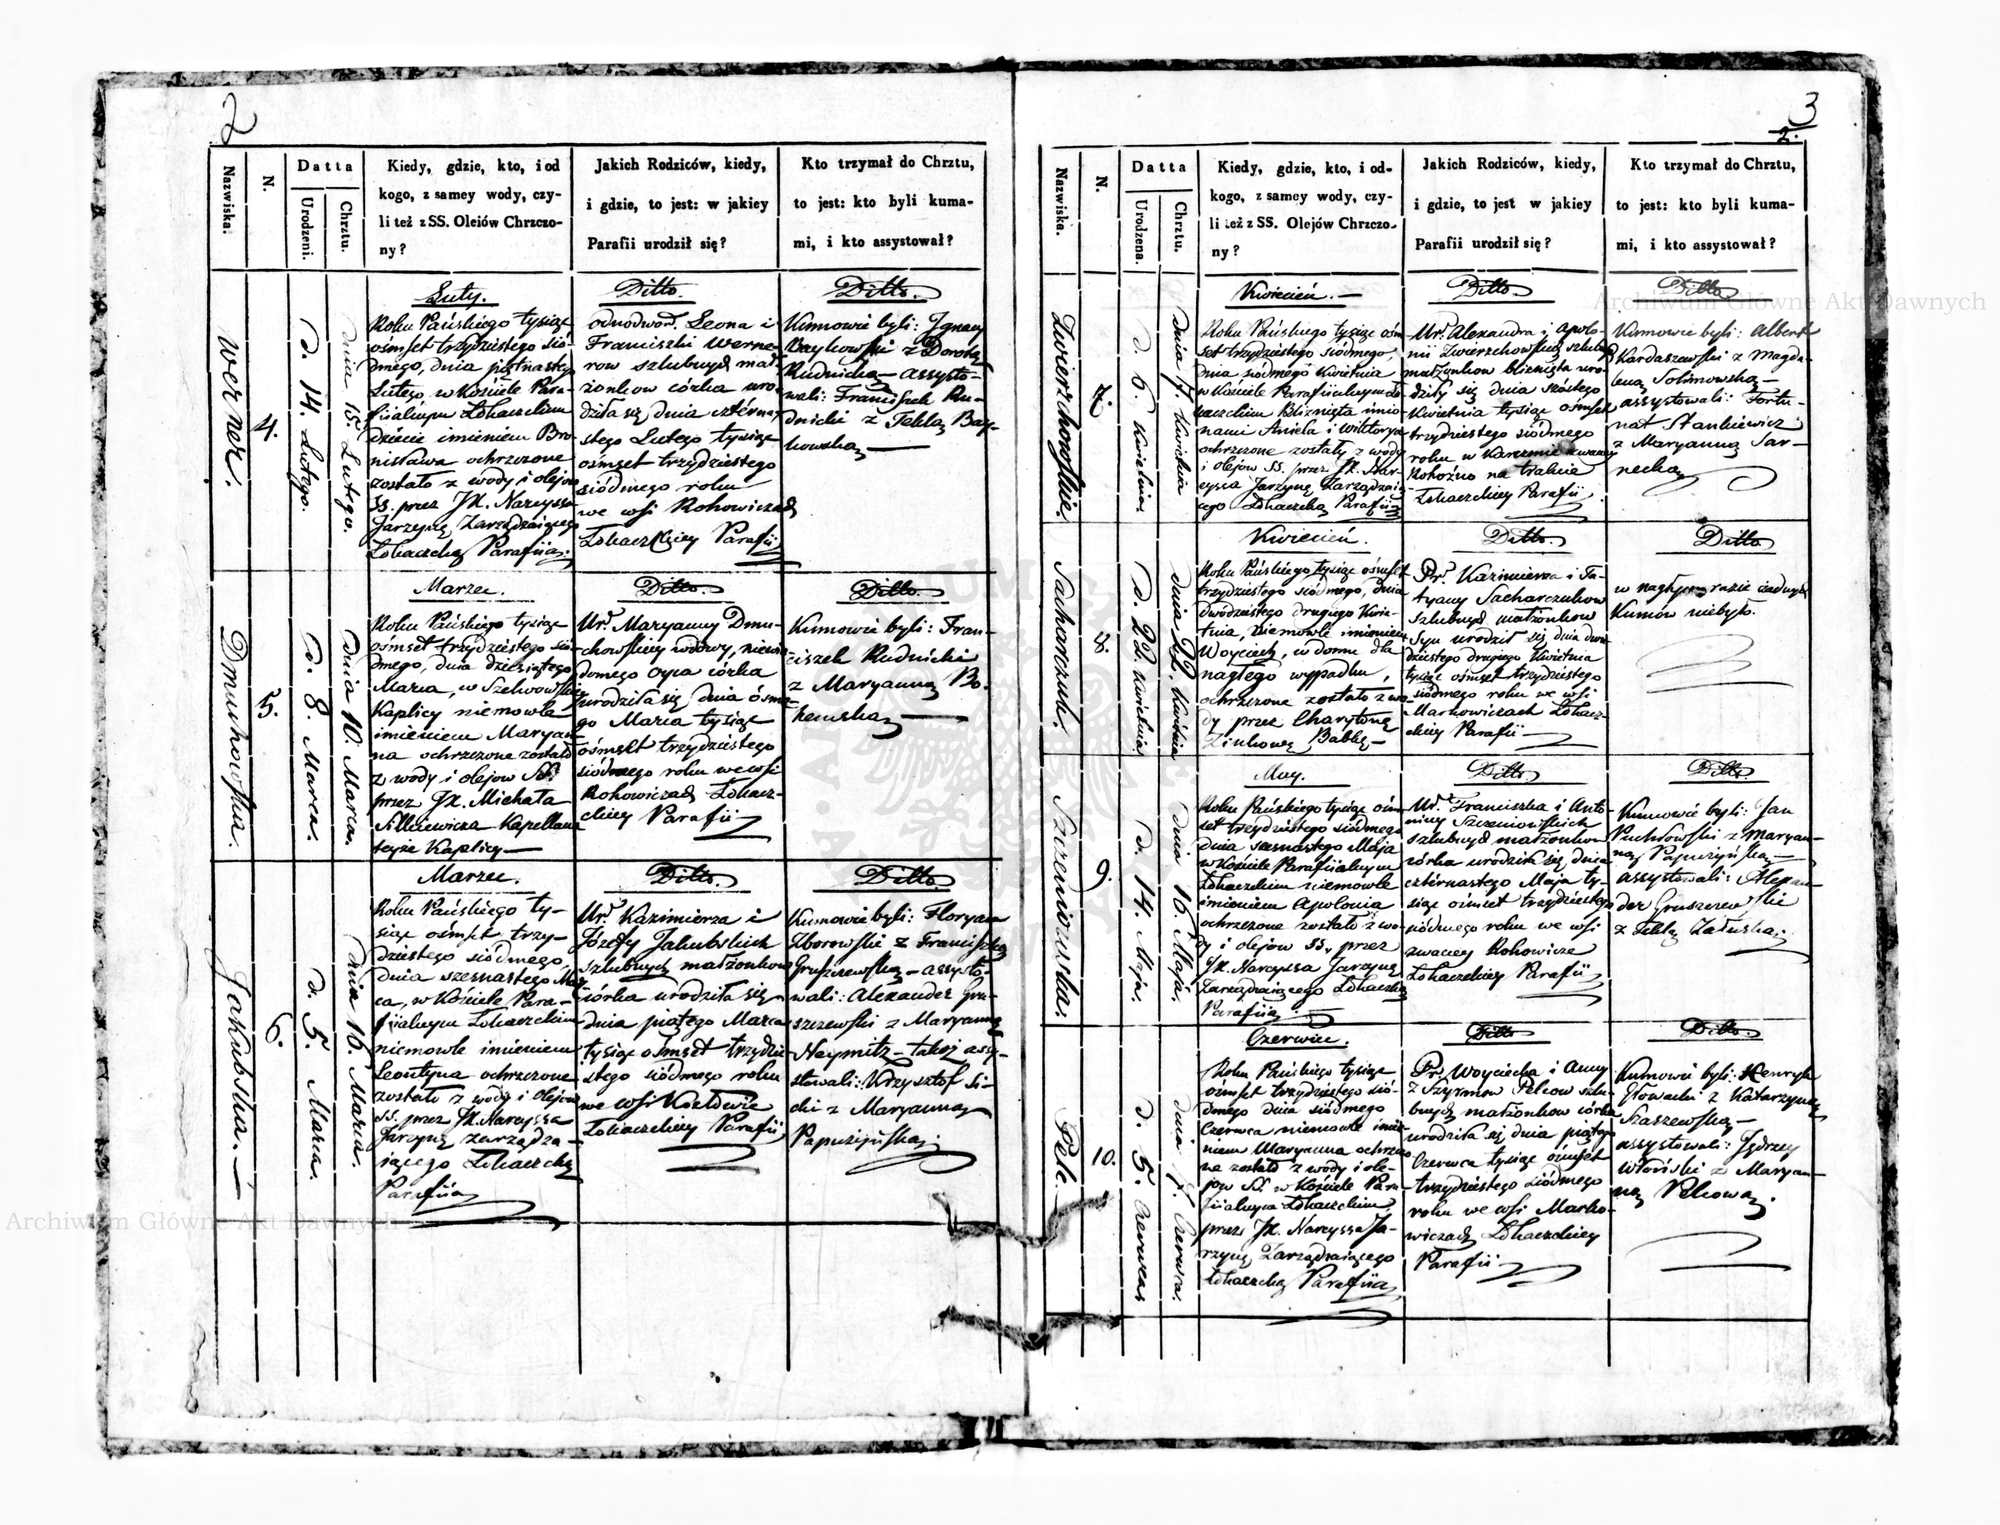 2
Nazwiska.
N.
Datta
Urodzeni.
Chrztu.
Kiedy, gdzie, kto, i od
kogo, z samey wody, czy-
li też z SS. Oleiów Chrzczo-
ny?
Jakich Rodziców, kiedy,
i gdzie, to jest: w jakiey
Parafii urodził się?
Kto trzymał do Chrztu,
to jest: kto byli kuma-
mi, i kto assystował?
Werner.
4.
d. 14. Lutego.
dnia 15. Lutego.
Luty.
Roku Pańskiego tysiąc
ośmset trzydziestego sió-
dmego, dnia piętnastego
Lutego, w Kościele Para-
fiialnym Łokaczckim
dziecie imieniem Bro-
nisława ochrzczone
zostało z wody i olejów
SS. przez JX. Narcyssa
Jarzynę Zarządzaiącego
Łokaczcką Parafiią.
Ditto.
odnodwor. Leona i
Franciszki Werne-
row szlubnych mał-
żonkow córka uro-
dziła się dnia czterna-
stego Lutego tysiąc
ośmset trzydziestego
siódmego roku
we wsi Rohowiczach
Łokaczckiey Parafii
Ditto.
Kumowie byli: Ignacy
Baykowski z Dorotą
Rudnicką — assysto-
wali: Franciszek Ru-
dnicki z Teklą Bay-
kowską —
Dmuchowska.
5.
d. 8. Marca.
dnia 10. Marca.
Marzec.
Roku Pańskiego tysiąc
ośmset trzydziestego sió-
dmego, dnia dziesiątego
Marca, w Szelwowskiey
Kaplicy niemowle
imieniem Maryan-
na ochrzczone zostało
z wody i olejow SS.
przez JX. Michała
Kapellana
teyże Kaplicy —
Ditto.
Ur. Maryanny Dmu-
chowskiey wdowy, niewia-
domego oyca córka
urodziła się dnia ósme-
go Marca tysiąc
ośmset trzydziestego
siódmego roku we wsi
Rohowiczach Łokacz-
ckiey Parafii
Ditto.
Kumowie byli: Fran-
ciszek Rudnicki
z Maryanną Bo-
Jakubska. —
6.
d. 5. Marca.
dnia 16. Marca.
Marzec.
Roku Pańskiego ty-
siąc ośmset trzy-
dziestego siódmego,
dnia szesnastego Mar-
ca, w Kościele Para-
fiialnym Łokaczckim
niemowle imieniem
Leontyna ochrzczone
zostało z wody i olejów
SS. przez JX. Narcyssa
Jarzynę zarządza-
iącego Łokaczcką
Parafiią
Ditto.
Ur. Kazimierza i
Józefy Jakubskich
szlubnych małżonkow
córka urodziła się
dnia piątego Marca
tysiąc ośmset trzydzie-
stego siódmego roku
we wsi Kozłowie
Łokaczckiey Parafii
Ditto
Kumowie byli: Floryan
Zborowski z Franciszką
Gruszewską — assysto-
wali: Alexander Gru-
szewski z Maryanną
Neymitz — takoj assy-
stowali: Krzysztof Si-
cki z Maryanną
3
2.
Nazwiska.
N.
Datta
Urodzena.
Chrztu.
Kiedy, gdzie, kto, i od-
kogo, z samey wody, czy-
li też z SS. Olejów Chrzczo-
ny?
Jakich Rodziców, kiedy,
i gdzie, to jest w jakiey
Parafii urodził się?
Kto trzymał do Chrztu,
to jest: kto byli kuma-
mi, i kto assystował?
Zwierzchowskie.
7.
d. 6. Kwietnia.
dnia 7. Kwietnia
Kwiecień. —
Roku Pańskiego tysiąc ośm-
set trzydziestego siódmego,
dnia siódmego Kwietnia
w Kościele Parafiialnym Ło-
kaczckim Bliznięta imio-
nami Aniela i Wiktorya
ochrzczone zostały z wody
i olejów SS. przez JX. Nar-
cyssa Jarzynę Zarządzaią-
cego Łokaczcką Parafiią
Ditto.
Ur. Alexandra i Apolo-
nii Zwierzchowskich szlubnych
małżonkow bliznięta uro-
dziły się dnia szóstego
Kwietnia tysiąc ośmset
trzydziestego siódmego
roku w Karczmie zwaney
Rohoźno na trakcie
Łokaczckiey Parafii
Ditto
Kumowie byli: Albert
Kardaszewski z Magda-
leną Solimowską —
assystowali: Fortu-
nat Stankiewicz
z Maryanną Sar-
necką
Sacharczuk.
8.
d. 22. Kwietnia
dnia 22. Kwietnia
Kwiecień.
Roku Pańskiego tysiąc ośmset
trzydziestego siódmego, dnia
dwódziestego drugiego Kwie-
tnia, niemowle imieniem
Woyciech, w domu dla
nagłego wypadku,
ochrzczone zostało z wo-
dy przez Charytonę
Zinkowę Babkę —
Ditto.
Pr. Kazimierza i Ta-
tyany Sacharczukow
Szlubnych małżonkow
Syn urodził się dnia dwu-
dziestego drugiego Kwietnia
tysiąc ośmset trzydziestego
siódmego roku we wsi
Markowiczach Łokacz-
ckiey Parafii —
Ditto
w nagłym razie żadnych
Kumów niebyło.
Szczeniowska.
9.
d. 14. Maja.
dnia 16. Maja.
May.
Roku Pańskiego tysiąc ośm-
set trzydziestego siódmego
dnia szesnastego Maja
w Kościele Parafiialnym
Łokaczckim niemowle
imieniem Apolonia
ochrzczone zostało z wo-
dy i olejow SS. przez
JX. Narcyssa Jarzynę
Zarządzaiącego Łokaczcką
Parafiią.
Ditto.
Ur. Franciszka i Anto-
niny Szczeniowskich
szlubnych małżonkow
córka urodziła się dnia
czternastego Maja ty-
siąc ośmset trzydziestego
siódmego roku we wsi
zwaney Rohowicze
Łokaczckiey Parafii
Ditto.
Kumowie byli: Jan
z Maryan-
ną
assystowali: Alexan-
der Gruszewski
z Teklą Załuską.
Pelc.
10.
d. 5. Czerwca
dnia 7. Czerwca.
Czerwiec.
Roku Pańskiego tysiąc
ośmset trzydziestego sió-
dmego dnia siódmego
Czerwca niemowle imie-
niem Maryanna ochrzczo-
ne zostało z wody i ole-
jow SS. w Kościele Para-
fiialnym Łokaczckim,
przez JX. Narcyssa Ja-
rzynę Zarządzaiącego
Łokaczcką Parafiią
Ditto
Pr. Woyciecha i Anny
z Szyrmow Pelcow szlu-
bnych małżonkow córka
urodziła się dnia piątego
Czerwca tysiąc ośmset
trzydziestego siódmego
roku we wsi Marko-
wiczach Łokaczckiey
Parafii
Ditto.
Kumowie byli: Henryk
Głowacki z Katarzyną
Staszewską —
assystowali: Jędrzey
z Maryan-
ną Pelcową.
Archiwum Główne Akt Dawnych
Archiwum Główne Akt Dawnych